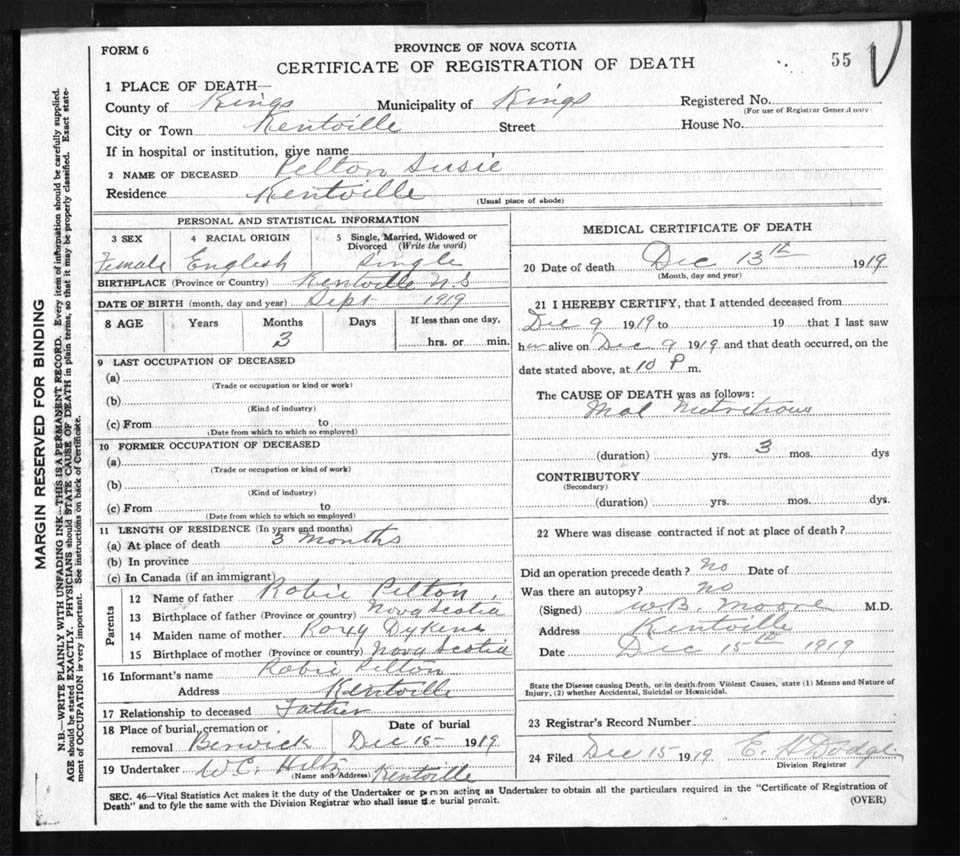 FORM 6
PROVINCE OF NOVA SCOTIA
CERTIFICATE OF REGISTRATION OF DEATH
55
1 PLACE OF DEATH—
County of Kings Municipality of Kings Registered No.
(For use of Registrar General only
City or Town Kentville Street House No.
If in hospital or institution, give name
2 NAME OF DECEASED Pelton Susie
Residence Kentville
(Usual place of abode)
PERSONAL AND STATISTICAL INFORMATION
3 SEX 4 RACIAL ORIGIN 5 Single, Married, Widowed or Divorced (Write the word)
Female English Single
BIRTHPLACE (Province or Country) Kentville N.S
DATE OF BIRTH (month, day and year) Sept 1919
8 AGE Years Months Days If less than one day,
3 hrs. or min.
9 LAST OCCUPATION OF DECEASED
(a)
(Trade or occupation or kind or work)
(b)
(Kind of industry)
(c) From to
(Date from which to which so employed)
10 FORMER OCCUPATION OF DECEASED
(a)
(Trade or occupation or kind of work)
(b)
(Kind of industry)
(c) From to
(Date from which to which so employed)
11 LENGTH OF RESIDENCE (In years and months)
(a) At place of death 3 Months
(b) In province
(c) In Canada (if an immigrant)
Parents
12 Name of father Robie Pelton
13 Birthplace of father (Province or country) Nova Scotia
14 Maiden name of mother Roxy Dykens
15 Birthplace of mother (Province or country) Nova Scotia
16 Informant's name Robie Pelton
Address Kentville
17 Relationship to deceased Father
18 Place of burial, cremation or removal Berwick
Date of burial
Dec 15 1919
19 Undertaker W C. Hiltz Kentville
(Name and Address)
MEDICAL CERTIFICATE OF DEATH
20 Date of death Dec 13th 1919
(Month, day and year)
21 I HEREBY CERTIFY, that I attended deceased from
Dec 9 1919 to 19 that I last saw
her alive on Dec 9 1919 and that death occurred, on the
date stated above, at 10 P m.
The CAUSE OF DEATH was as follows:
Mal Nutritions
(duration) yrs. 3 mos. dys
CONTRIBUTORY
(Secondary)
(duration) yrs. mos. dys.
22 Where was disease contracted if not at place of death?
Did an operation precede death? No Date of
Was there an autopsy? No
(Signed) W.B. Moore M.D.
Address Kentville
Date Dec 15th 1919
State the Disease causing Death, or in death from Violent Causes, state (1) Means and Nature of
Injury, (2) whether Accidental, Suicidal or Homicidal.
23 Registrar's Record Number
24 Filed Dec 15 1919 E. H Dodge
Division Registrar
SEC. 46—Vital Statistics Act makes it the duty of the Undertaker or person acting as Undertaker to obtain all the particulars required in the "Certificate of Registration of
Death" and to fyle the same with the Division Registrar who shall issue the burial permit.
(OVER)
MARGIN RESERVED FOR BINDING
N.B.—WRITE PLAINLY WITH UNFADING INK—THIS IS A PERMANENT RECORD. Every item of information should be carefully supplied.
AGE should be stated EXACTLY. PHYSICIANS should STATE CAUSE OF DEATH in plain terms, so that it may be properly classified. Exact state-
ment of OCCUPATION is very important. See instructions on back of Certificate.